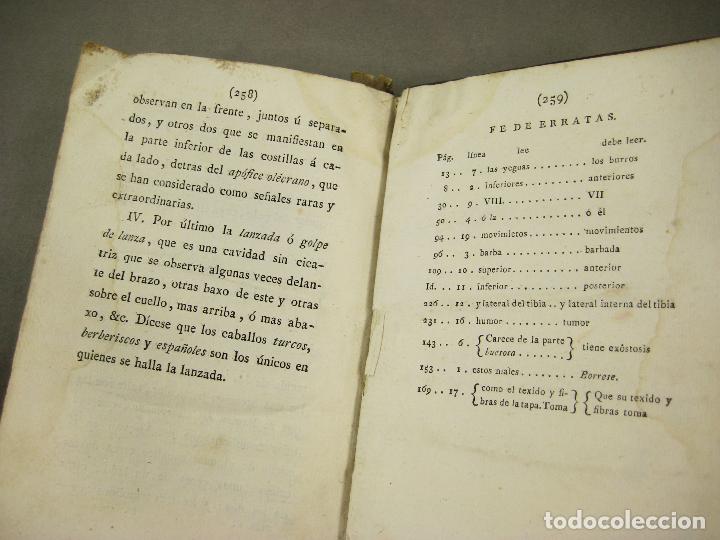 (258)
observan en la frente, juntos ú separa-
dos, y otros dos que se manifiestan en
la parte inferior de las costillas á ca-
da lado, detras del apófice olécrano, que
se han considerado como señales raras y
extraordinarias.
IV. Por último la lanzada ó golpe
de lanza, que es una cavidad sin cica-
triz que se observa algunas veces delan-
te del brazo, otras baxo de este y otras
sobre el cuello, mas arriba, ó mas aba-
xo, &c. Dícese que los caballos turcos,
berberiscos y españoles son los únicos en
quienes se halla la lanzada.
(259)
FE DE ERRATAS.
Pág. línea lee debe leer.
13 .. 7. las yeguas ........ los burros
8 .. 2. inferiores ........ anteriores
30 .. 9. VIII. ........ VII
50 .. 4. ó la ........ ó él
94 .. 19. movimietos ...... movimientos
96 .. 3. barba ........ barbada
109 .. 10. superior ........ anterior
Id. .. 11. inferior ........ posterior
226 .. 12. y lateral del tibia .. y lateral interna del tibia
231 .. 16. humor ........ tumor
143 .. 6. {Carece de la parte
huesosa ........} tiene exôstosis
153 .. 1. estos males ....... Borrese.
169 .. 17. {como el texido y fi-
bras de la tapa. Toma} {Que su texido y
fibras toma
todocoleccion
todocoleccion.net